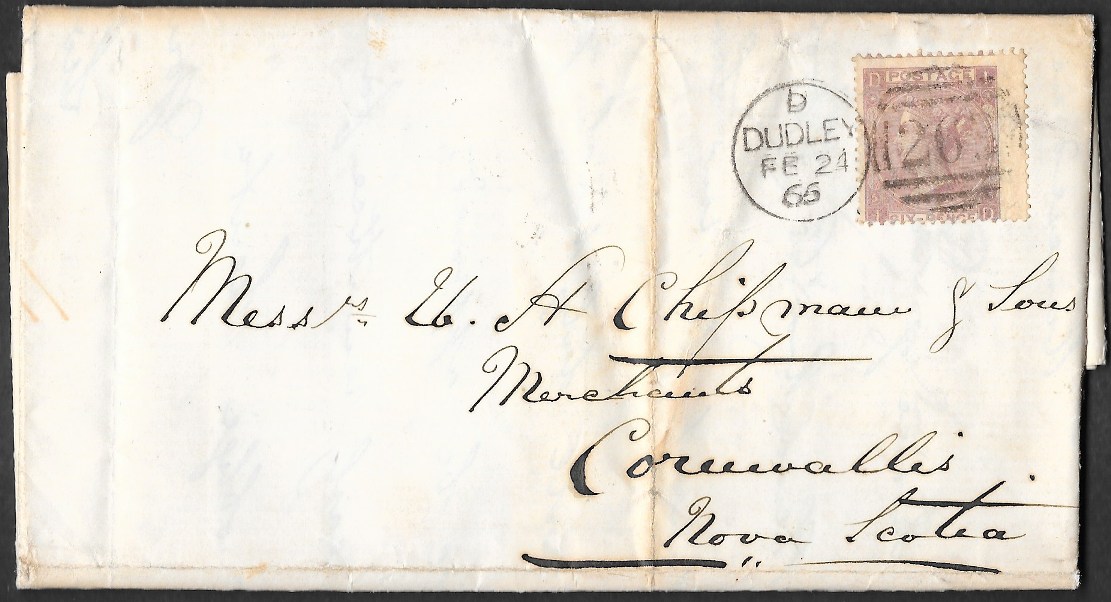 D
DUDLEY
FE 24
65
D POSTAGE I
I SIX-PENCE D
Messrs W. H Chipman & Sons
Merchants
Cornwallis
Nova Scotia